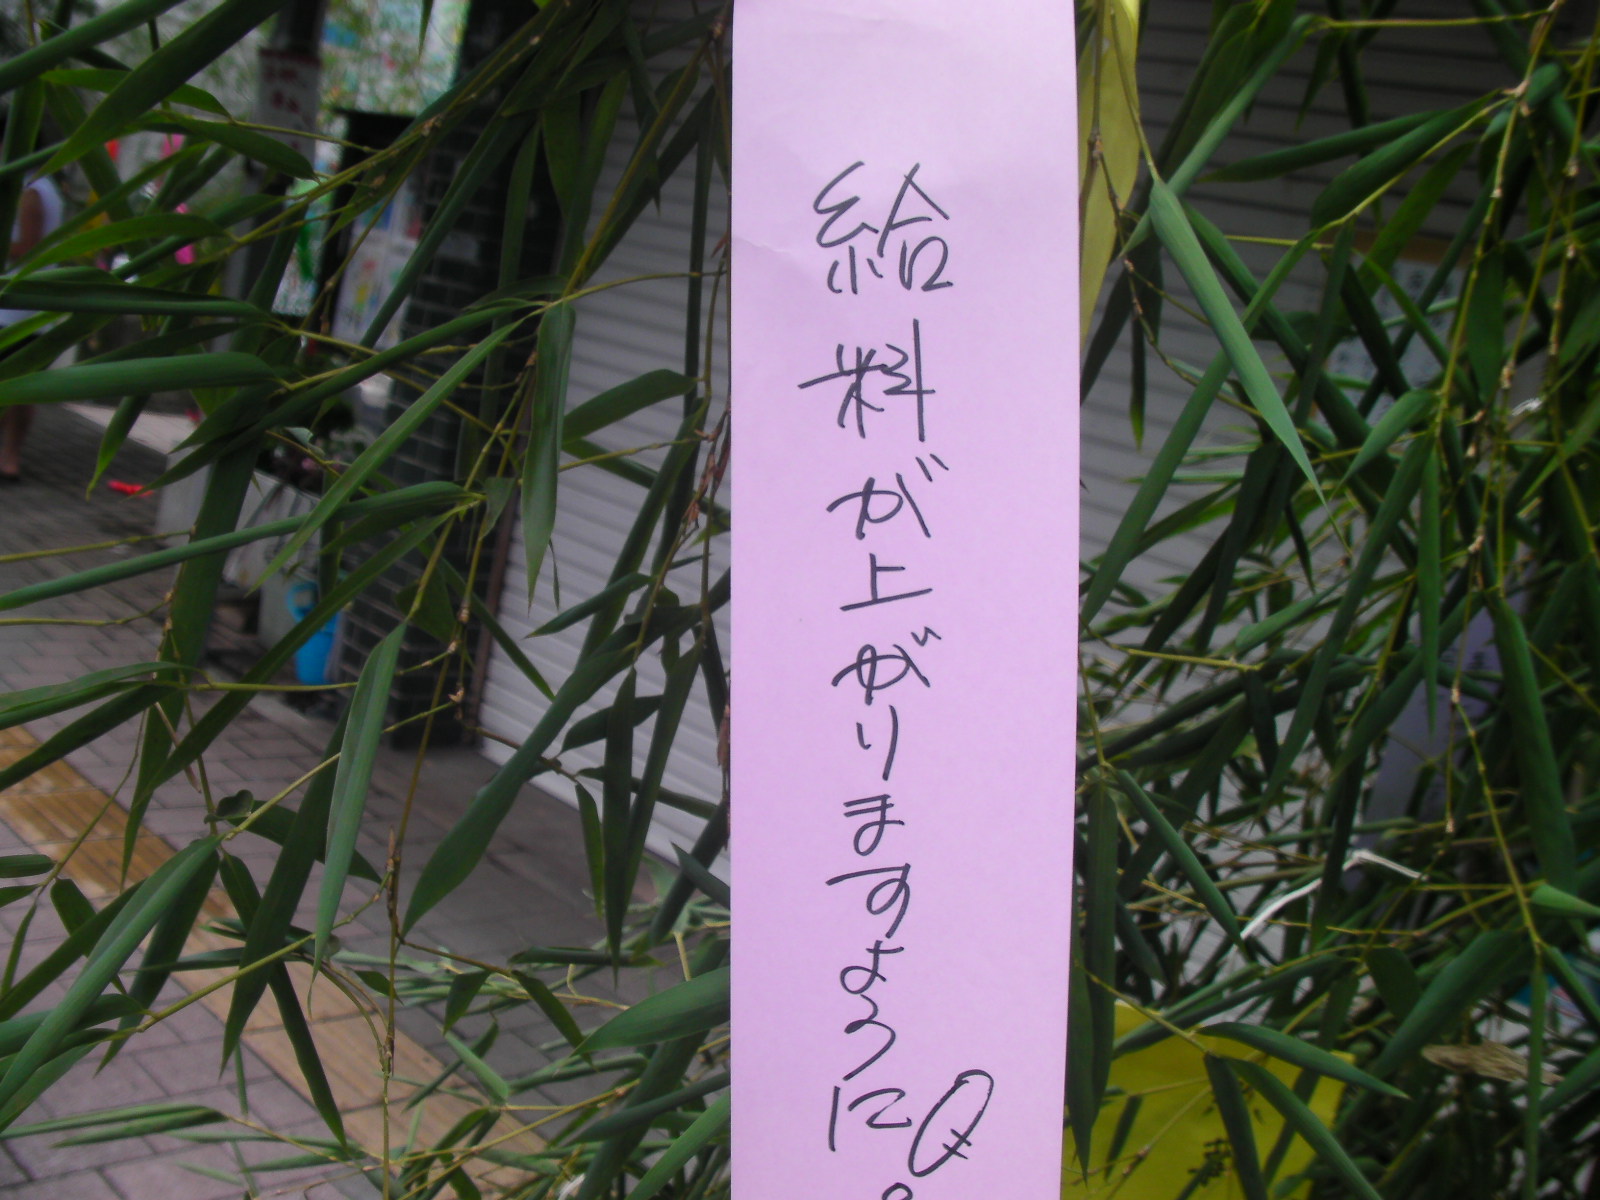 給料が上がりますように